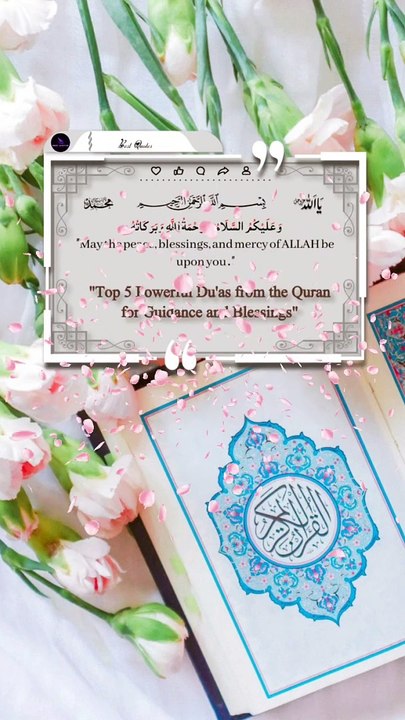 Best Quotes
محمد ﷽ يا الله
وَعَلَيْكُمُ السَّلَامُ وَرَحْمَةُ اللهِ وَبَرَكَاتُهُ
"May the peace, blessings, and mercy of ALLAH be
upon you."
"Top 5 Powerful Du'as from the Quran
for Guidance and Blessings"
القرآن الكريم